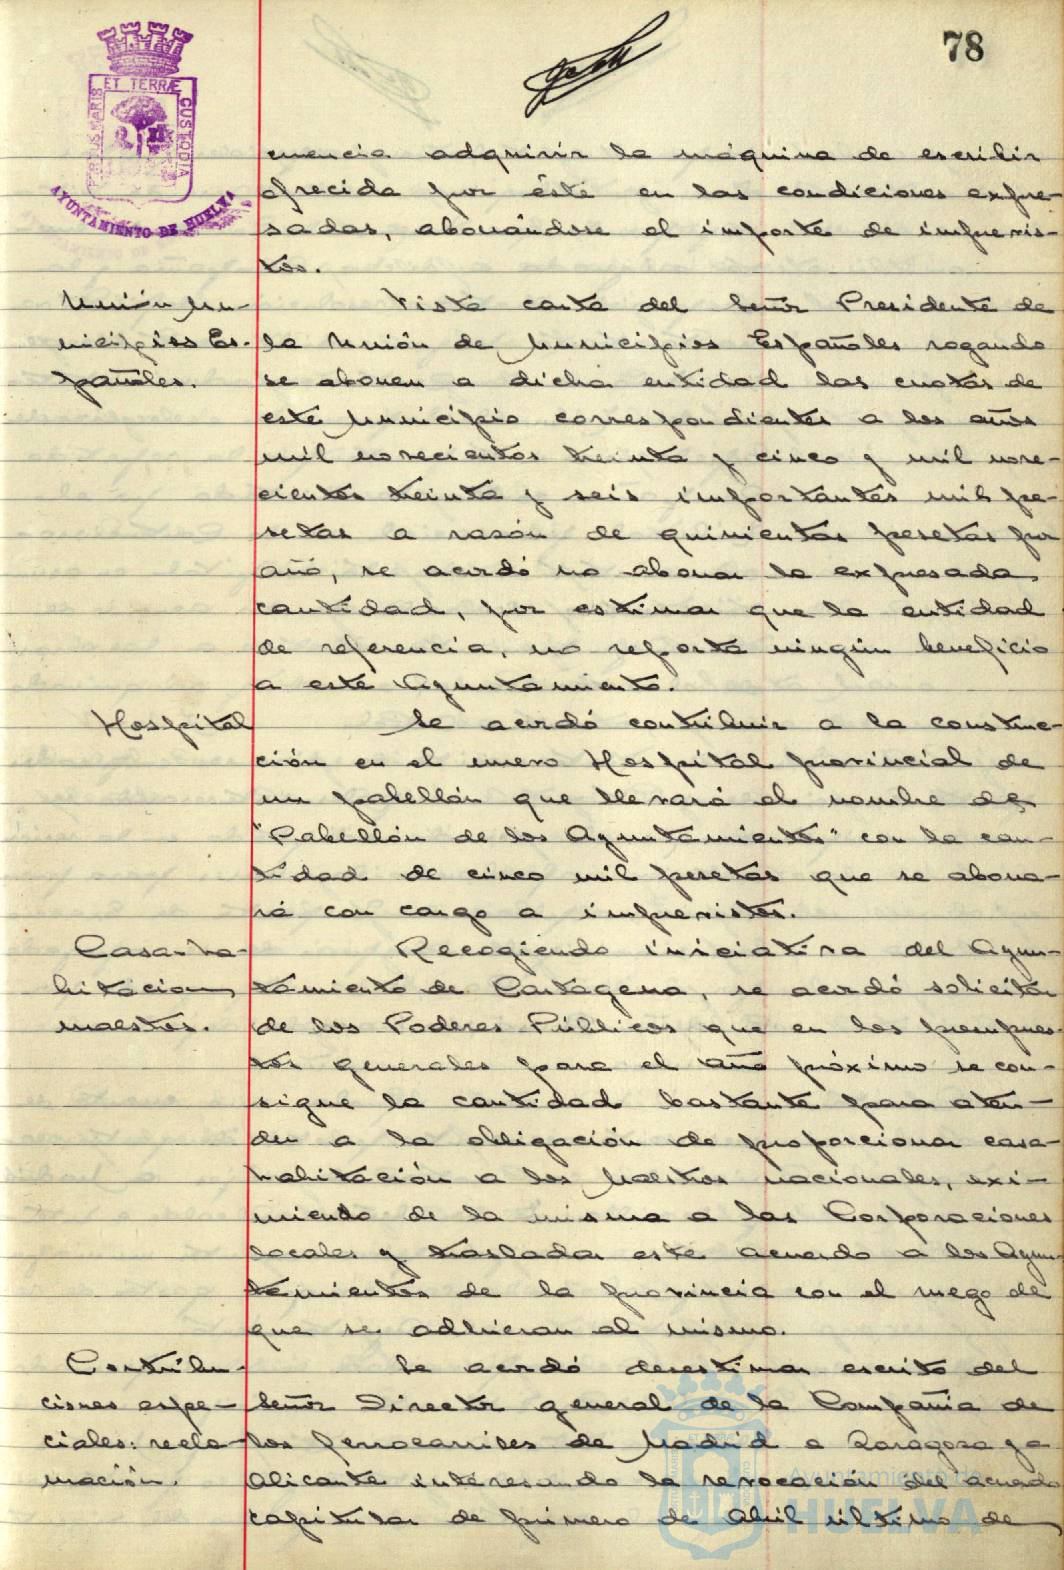 78
PORTUS MARIS ET TERRÆ CUSTODIA
AYUNTAMIENTO DE HUELVA
cuencia adquirir la máquina de escribir
ofrecida por éste en las condiciones expre-
sadas, abonándose el importe de imprevis-
tos.
Unión Mu-
nicipios Es-
pañoles.
Vista carta del Señor Presidente de
la Unión de Municipios Españoles rogando
se abonen a dicha entidad las cuotas de
este Municipio correspondientes a los años
mil novecientos treinta y cinco y mil nove-
cientos treinta y seis importantes mil pe-
setas a razón de quinientas pesetas por
año, se acordó no abonar la expresada
cantidad, por estimar que la entidad
de referencia, no reporta ningún beneficio
a este Ayuntamiento.
Hospital
Se acordó contribuir a la construc-
ción en el nuevo Hospital provincial de
un pabellón que llevará el nombre de
"Pabellón de los Ayuntamientos" con la can-
tidad de cinco mil pesetas que se abona-
rá con cargo a imprevistos.
Casa-ha-
bitacion
maestros.
Recogiendo iniciativa del Ayun-
tamiento de Cartagena, se acordó solicitar
de los Poderes Públicos que en los presupues-
tos generales para el año próximo se con-
signe la cantidad bastante para aten-
der a la obligación de proporcionar casa-
habitación a los Maestros nacionales, exi-
miendo de la misma a las Corporaciones
locales y trasladar este acuerdo a los Ayun-
tamientos de la provincia con el ruego de
que se adhieran al mismo.
Contribu-
ciones espe-
ciales: recla-
mación.
Se acordó desestimar escrito del
Señor Director general de la Compañia de
los ferrocarriles de Madrid a Zaragoza y a
Alicante interesando la revocación del acuerdo
capitular de primero de Abril último de
Ayuntamiento de
HUELVA